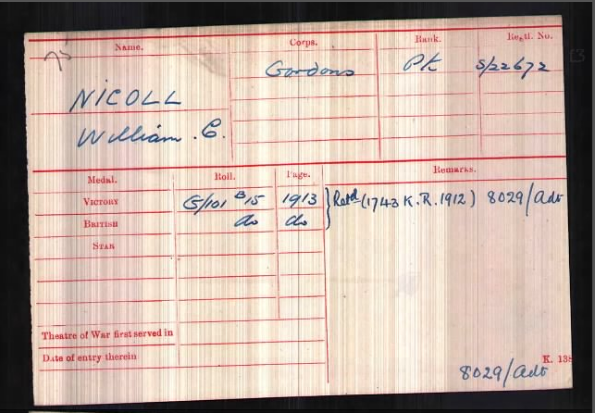 Name. Corps. Rank. Regtl. No.
Gordons Pte S/22672
NICOLL
William . C.
Medal. Roll. Page. Remarks.
VICTORY G/101 B15 1913 } Retd (1743 K.R. 1912) 8029/Adt
BRITISH do do
STAR
Theatre of War first served in
Date of entry therein
K. 138
8029/Adt